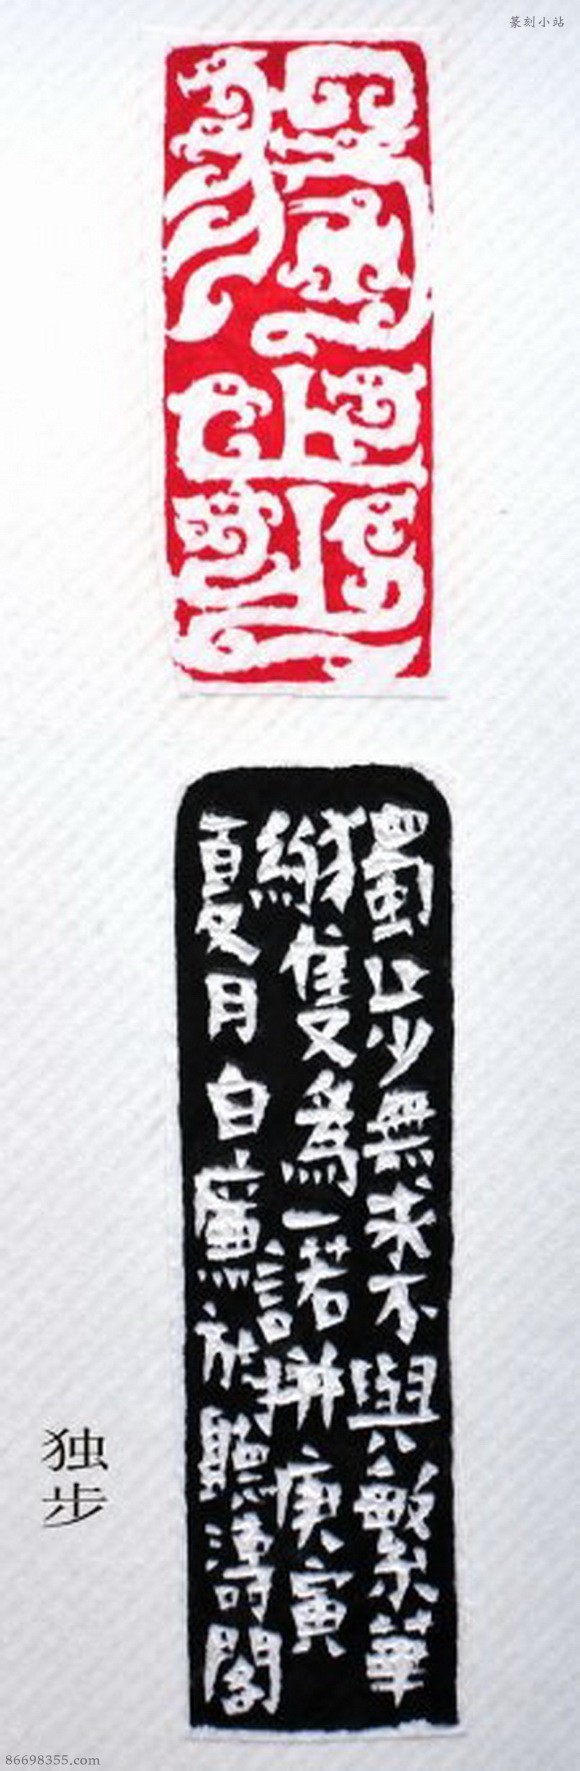 篆刻小站
獨步
獨步無求不與繁華
隻為一諾拼 庚寅
夏月白於聽濤閣
独步
86698355.com